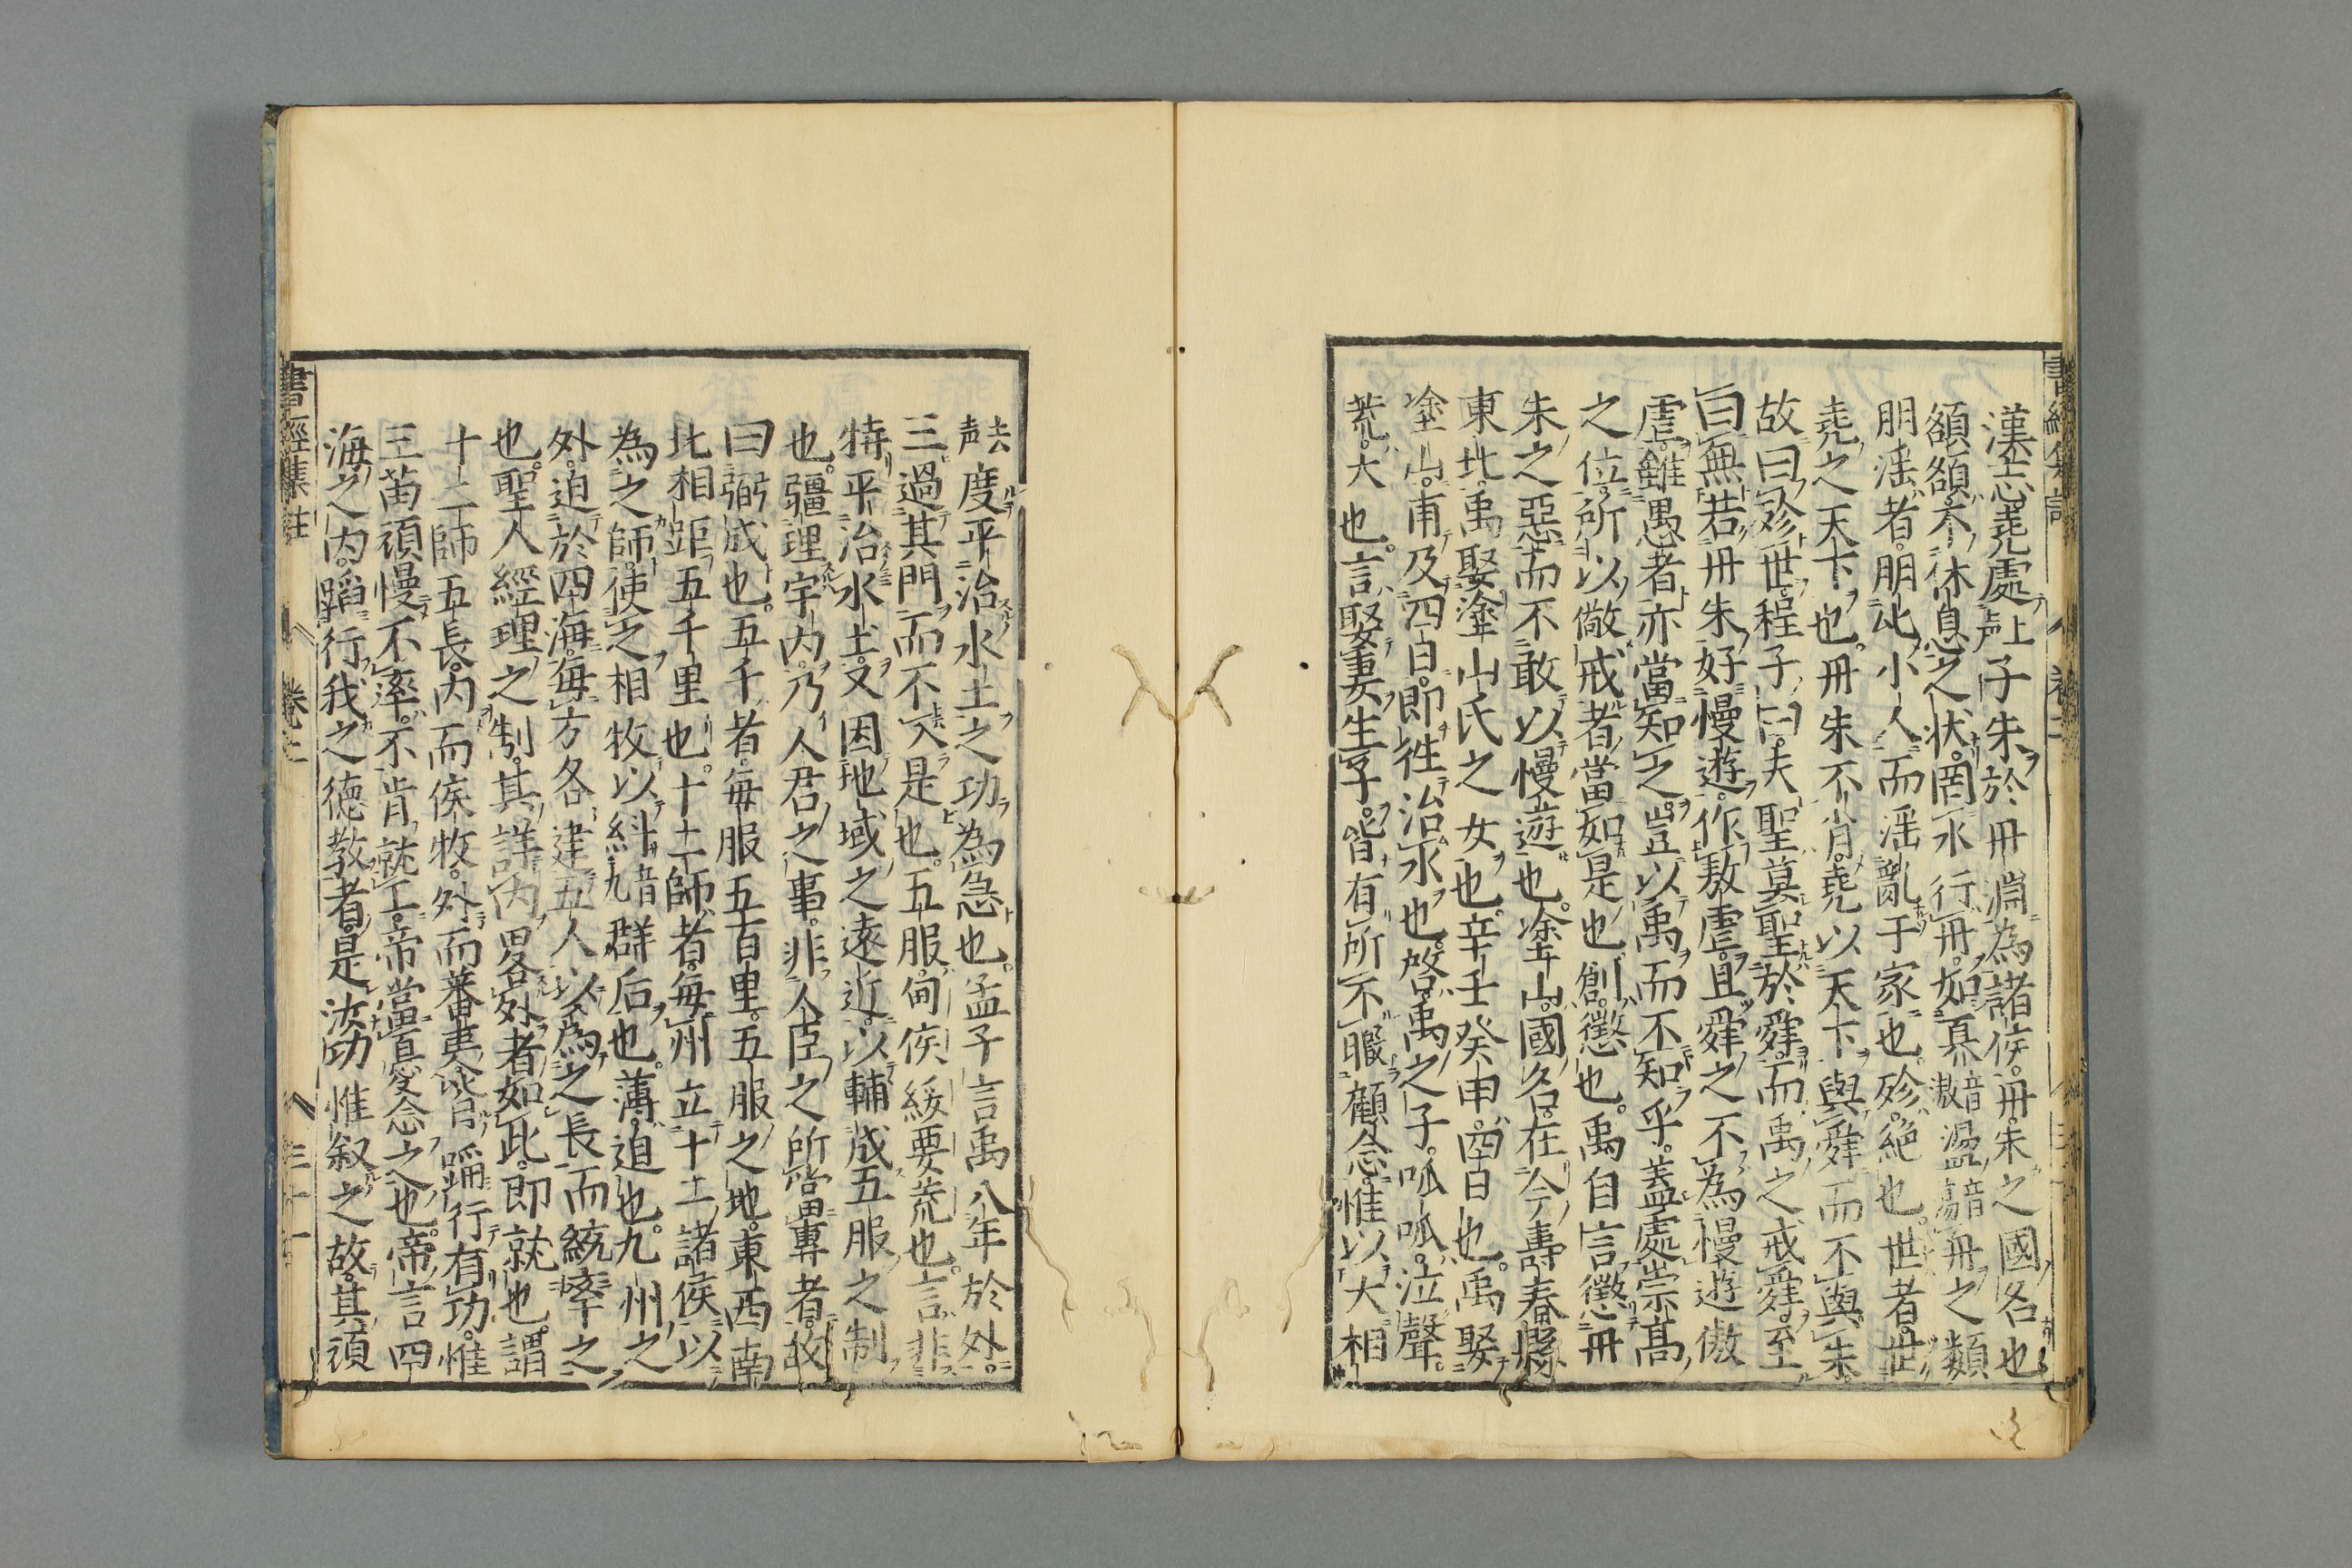 漢志堯處上声子朱於丹淵為諸侯丹朱之國名也
頟頟不休息之状罔水行舟如奡音傲盪音蕩舟之類
朋淫者朋比小人而淫亂于家也殄絶也世者世
堯之天下也丹朱不肖堯以天下與舜而不與朱
故曰殄世程子曰夫聖莫聖於舜而禹之戒舜至
曰無若丹朱好慢遊作敖虐且舜之不為慢遊傲
虐雖愚者亦當知之豈以禹而不知乎蓋處崇高
之位所以儆戒者當如是也創懲也禹自言懲丹
朱之惡而不敢以慢遊也塗山國名在今壽春縣
東北禹娶塗山氏之女也辛壬癸甲四日也禹娶
塗山甫及四日即徃治水也啓禹之子呱呱泣聲
荒大也言娶妻生子皆有所不暇顧念惟以大相
去声度平治水土之功為急也孟子言禹八年於外
三過其門而不入是也五服甸侯綏要荒也言非
特平治水土又因地域之遠近以輔成五服之制
也疆理宇内乃人君之事非人臣之所當專者故
曰弼成也五千者毎服五百里五服之地東西南
北相距五千里也十二師者毎州立十二諸侯以
為之師使之相牧以糾音九群后也薄迫也九州之
外迫於四海毎方各建五人以為之長而統率之
也聖人經理之制其詳内畧外者如此即就也謂
十二師五長内而侯牧外而蕃夷皆蹈行有功惟
三苗頑慢不率不肯就工帝當憂念之也帝言四
海之内蹈行我之徳教者是汝功惟叙之故其頑
書經集註 卷二 三十一